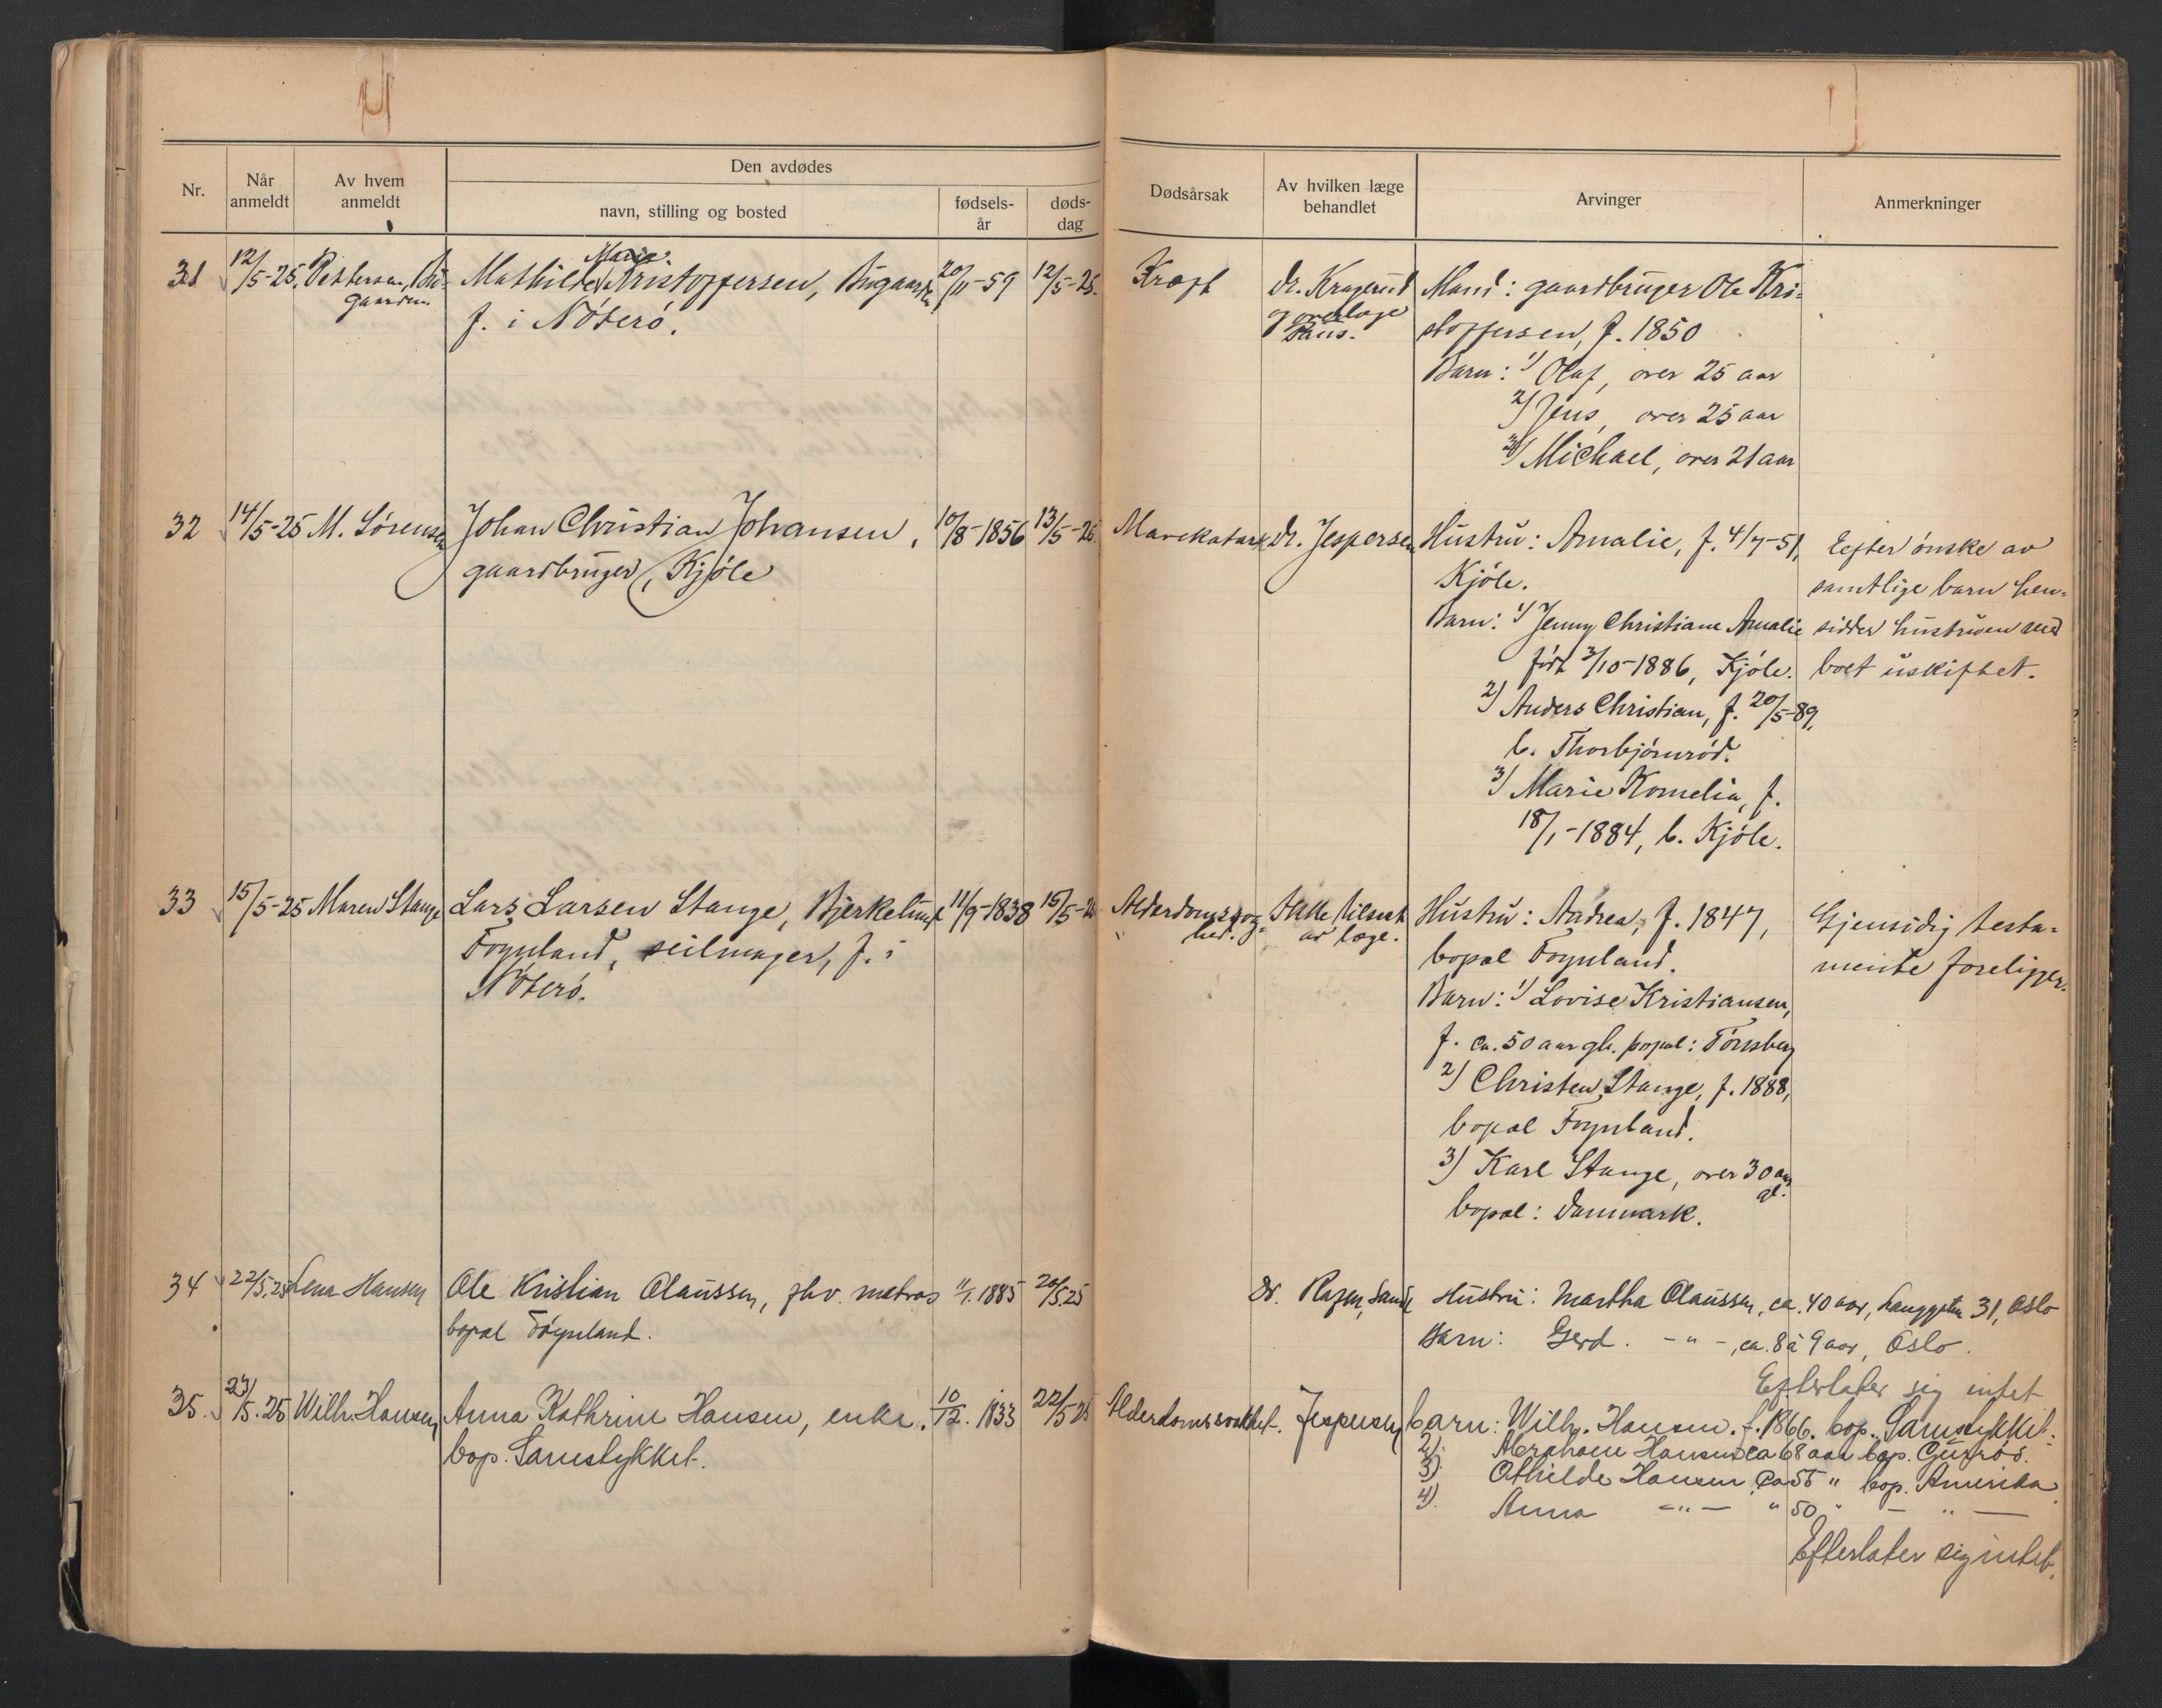 Nr.
Når anmeldt
Av hvem anmeldt
Den avdødes
navn, stilling og bosted
fødsels-år
døds-dag
Dødsårsak
Av hvilken læge behandlet
Arvinger
Anmerkninger
31 12/5-25. Pettersen, Bu-
gaarden.
Marie
Mathilde Kristoffersen, Bugaarden 20/11-59 12/5-25.
f. i Nøterø.
Kræft
dr. Kragerud
og overlæge
Paus.
Mand: gaardbruger Ole Kri-
stoffersen, f. 1850
Barn: 1) Olaf, over 25 aar
2) Jens, over 25 aar
3) Michael, over 21 aar
32 14/5-25 M. Sørensen
Johan Christian Johansen, 10/8-1856 13/5-25
gaardbruger, Kjøle
Mavekatarr
dr. Jespersen
Hustru: Amalie, f. 4/7-51,
Kjøle.
Barn: 1) Jenny Christiane Amalie
født 3/10-1886, Kjøle.
2) Anders Christian, f. 20/5-89,
b. Thorbjørnrød.
3) Marie Kornelia, f.
18/1-1884, b. Kjøle.
Eefter ønske av
samtlige barn hen-
sidder hustruen med
boet uskiftet.
33 15/5-25 Maren Stange
Lars Larsen Stange, Bjerkelund 11/9-1838 15/5-25
Føynland, seilmager, f. i
Nøterø.
Alderdomssvag-
hed.
Ikke tilseet
av læge.
Hustru: Andrea, f. 1847,
bopæl Føynland.
Barn: 1) Lovise Kristiansen,
f. ca. 50 aar gl. bopæl: Tønsberg
2) Christen Stange, f. 1888,
bopæl Føynland.
3) Karl Stange, over 30 aar
gl.
bopæl: Danmark.
Gjensidig testa-
mente foreligger.
34 22/5.25 Lena Hansen
Ole Kristian Olaussen, fhv. matros 11/1.1885 20/5.25
bopæl Føynland.
Dr. Sande
Hustru: Martha Olaussen, ca. 40 aar, Langgaten 31, Oslo
Barn: Gerd. -"-, ca. 8 à 9 aar, Oslo.
Efterlater sig intet
35. 23/5.25 Wilh. Hansen
Anna Kathrine Hansen, enke. 10/12. 1833 22/5 25
bop. Sanestykket.
Alderdomssvakhet. Jespersen
barn: Wilh. Hansen. f. 1866. bop. Sanestykket.
2). Abraham Hansen ca 68 aar bop. Gurrød.
3). Othilde Hansen. Ca 55 " bop. Amerika
4). Anna -"- " 50 " - " -
Efterlater sig intet.